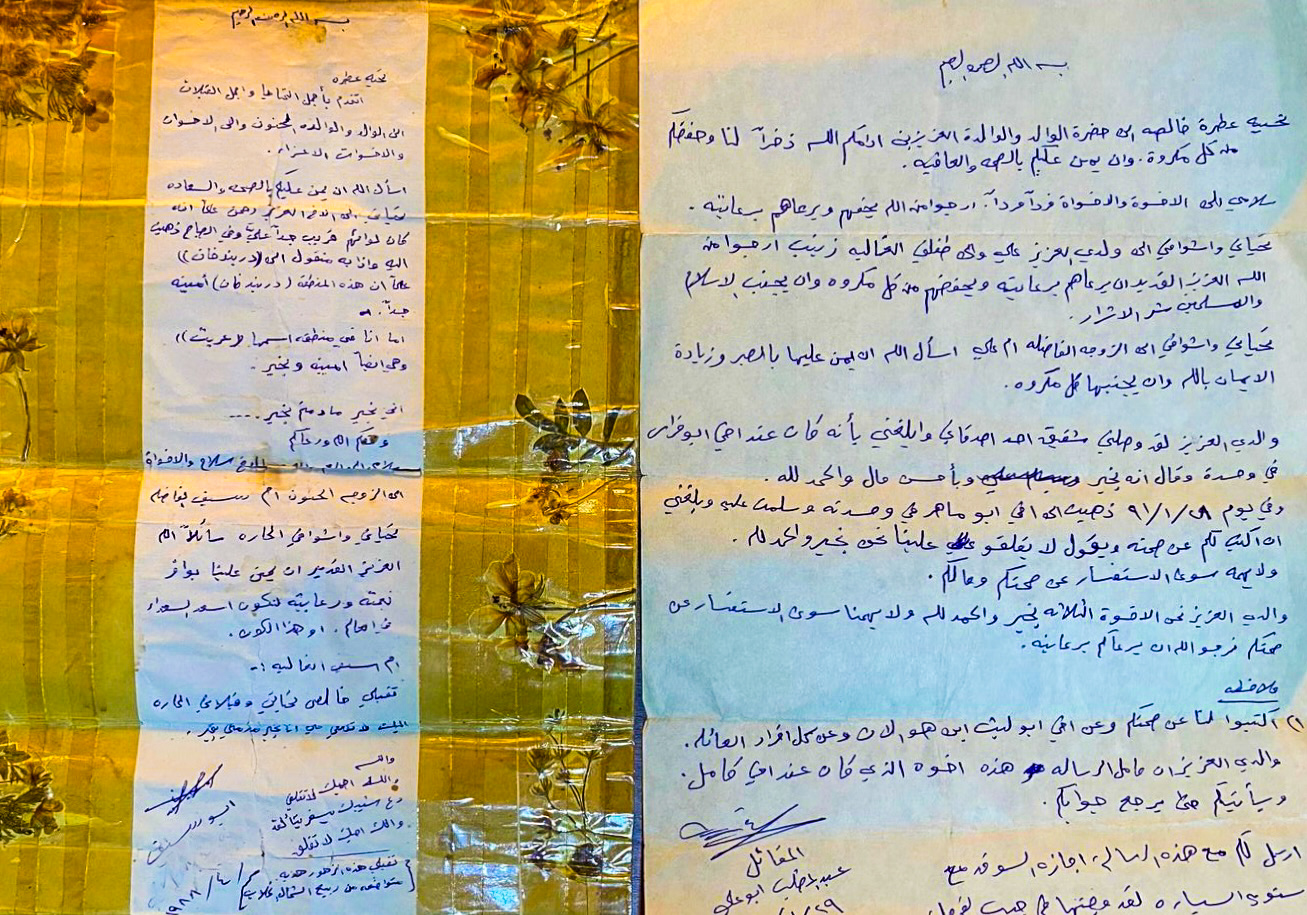 بسم الله الرحمن الرحيم
تحيه عطره
اتقدم بأجمل التحايا واجمل القبلات
الى الوالد والوالده الحنون والى الاخوان
والاخوات الاعزاء.
اسأل الله ان يمن عليكم بالصحه والسعاده
الى الاخ العزيز علماً انه
كان قريب جداً علي وفي الصباح ذهبت
اليه واذا به منقول الى ((دربندخان))
علماً ان هذه المنطقه (دربندخان) أمينه
جداً.
اما انا في منطقه اسمها ((عربت))
وهي ايضاً امينه وبخير.
اني بخير مادمتم بخير....
وفقكم الله ورعاكم
سلام والاخوة
الى الزوجه الحنون ام سيف الفاضله
تحياتي واشواقي الحاره سائلاً الله
العزيز القدير ان يمن علينا بوافر
نعمته ورعايته لنكون اسعد السعداء
في العالم. او هذا الكون.
ام سيف الغاليه :-
تقبلي خالص تحياتي وقبلاتي الحاره
والله
والله احبك لا تقلقي
والله احبك لا تقلقي
ابو سيف
تقبلي هذه الزهور هديه
متواضعه من ربيع الشمال
١٩٨٨/٤/
بسم الله الرحمن الرحيم
تحيه عطرة خالصه الى حضرة الوالد والوالدة العزيزين ادامكم الله ذخراً لنا وحفضكم
من كل مكروة. وان يمن عليكم بالصحه والعافيه.
سلامي الى الاخوة والاخواة فرداً فرداً. ارجوا من الله يحفضهم ويرعاهم برعايته.
تحياتي واشواقي الى ولدي العزيز علي والى طفلتي الغاليه زينب ارجوا من
الله العزيز القدير ان يرعاهم برعايته ويحفضهم من كل مكروه وان يجنب الاسلام
والمسلمين شر الاشرار.
تحياتي واشواقي الى الزوجه الفاضله ام علي اسأل الله ان يمن عليها بالصبر وزيادة
الايمان بالله وان يجنبها كل مكروه.
والدي العزيز لقد وصلني شقيق احد اصدقائي وابلغني بأنه كان عند اخي ابو فراس
في وحدة وقال انه بخير وبأحسن حال والحمد لله.
وفي يوم ٩١/١/٢٨ ذهبت الى اخي ابو ماهر في وحدته وسلمت عليه وبلغني
ان اكتب لكم عن صحته ويقول لا يقلقو علينا نحن بخير والحمد لله.
ولا يهمه سوى الاستفسار عن صحتكم وحالكم.
والدي العزيز نحن الاخوة الثلاثه بخير والحمد لله ولا يهمنا سوى الاستفسار عن
صحتكم نرجو الله ان يرعاكم برعايته.
ملاحظه
١) اكتبوا لنا عن صحتكم وعن اخي ابو ليث اين هو الان وعن كل افراد العائله.
والدي العزيز ان حامل الرساله هذه اخوه الذي كان عند اخي كامل.
وسأتيكم حتى يرجع جوابكم.
المقاتل
عبد المطلب ابو علي
١/٢٩
ارسل لكم مع هذه الرساله اجازه السوق مع
سنوية السياره لقد وضعتها في جيب